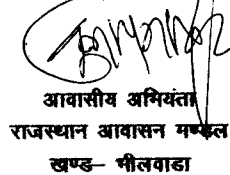 आवासीय अभियंता
राजस्थान आवासन मण्डल
खण्ड– भीलवाडा